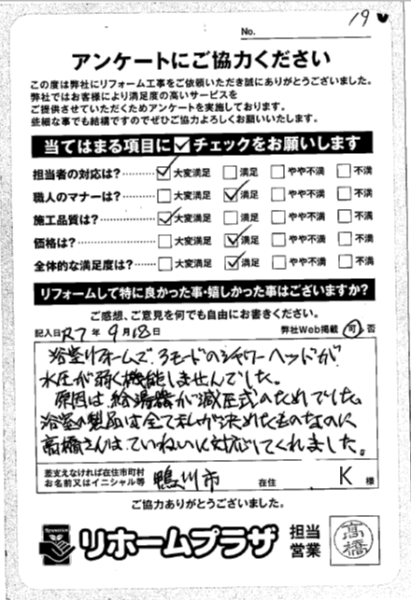 19
No.
アンケートにご協力ください
この度は弊社にリフォーム工事をご依頼いただき誠にありがとうございました。
弊社ではお客様により満足度の高いサービスを
ご提供させていただくためアンケートを実施しております。
些細な事でも結構ですのでぜひご協力よろしくお願いいたします。
当てはまる項目に☑チェックをお願いします
担当者の対応は?………☑大変満足 □満足 □やや不満 □不満
職人のマナーは?………□大変満足 ☑満足 □やや不満 □不満
施工品質は?……………☑大変満足 □満足 □やや不満 □不満
価格は?…………………□大変満足 ☑満足 □やや不満 □不満
全体的な満足度は?……□大変満足 ☑満足 □やや不満 □不満
リフォームして特に良かった事・嬉しかった事はございますか?
ご感想、ご意見を何でも自由にお書きください。
記入日R7年 9月18日 弊社Web掲載 可・否
浴室リフォームで、3モードのシャワーヘッドが
水圧が弱く機能しませんでした。
原因は、給湯器が減圧式のためでした。
浴室の製品は全て私が決めたものなのに
高橋さんはていねいに対応してくれました。
差支えなければ在住市町村
お名前又はイニシャル等 鴨川市 在住 K 様
ご協力ありがとうございました。
リホームプラザ
担当
営業
高橋